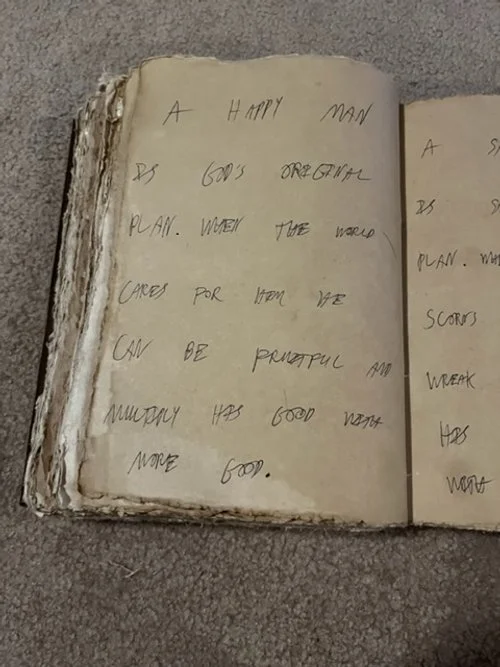 A HAPPY MAN
IS GOD'S ORIGINAL
PLAN. WHEN THE WORLD
CARES FOR HIM HE
CAN BE FRUITFUL AND
MULTIPLY HIS GOOD WITH
MORE GOOD.
A
IS
PLAN.
SCORNS
WREAK
HIS
WITH